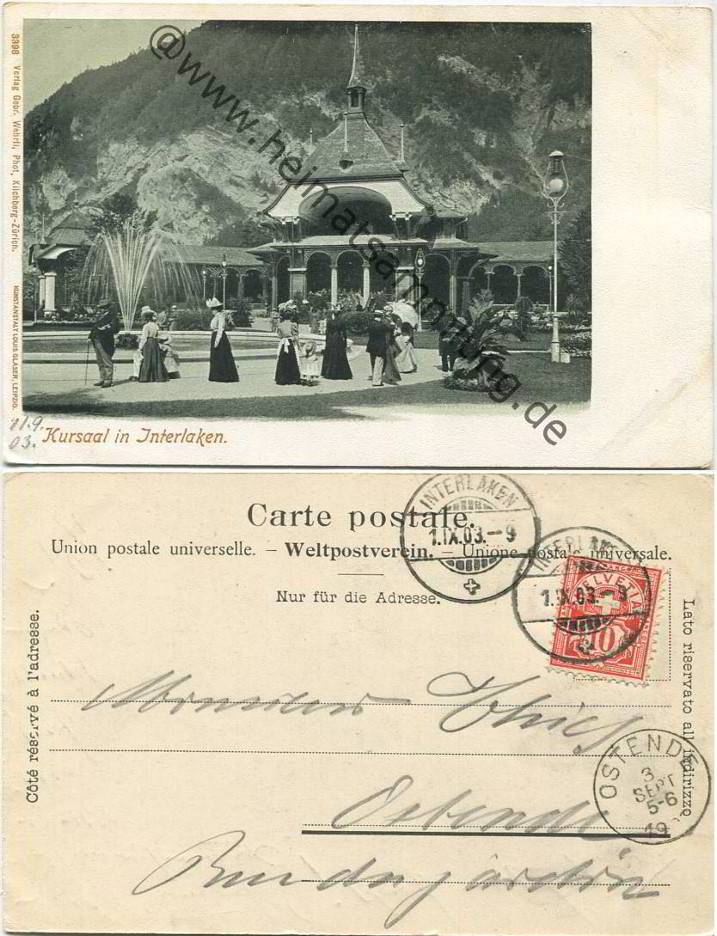 3398 Verlag Gebr. Wehrli, Phot. Kilchberg-Zürich.
KUNSTANSTALT LOUIS GLASER, LEIPZIG.
@www.heimatsammlung.de
11.9.
03.
Kursaal in Interlaken.
Carte postale.
Union postale universelle. – Weltpostverein. – Unione postale universale.
Nur für die Adresse.
Côté réservé à l'adresse.
Lato riservato all indirizzo
INTERLAKEN
1.IX.03.–9
INTERLAKEN
1.IX.03.–9
HELVETIA
10
Monsieur Thies
OSTENDE
3
SEPT
5-6
19
Ostende